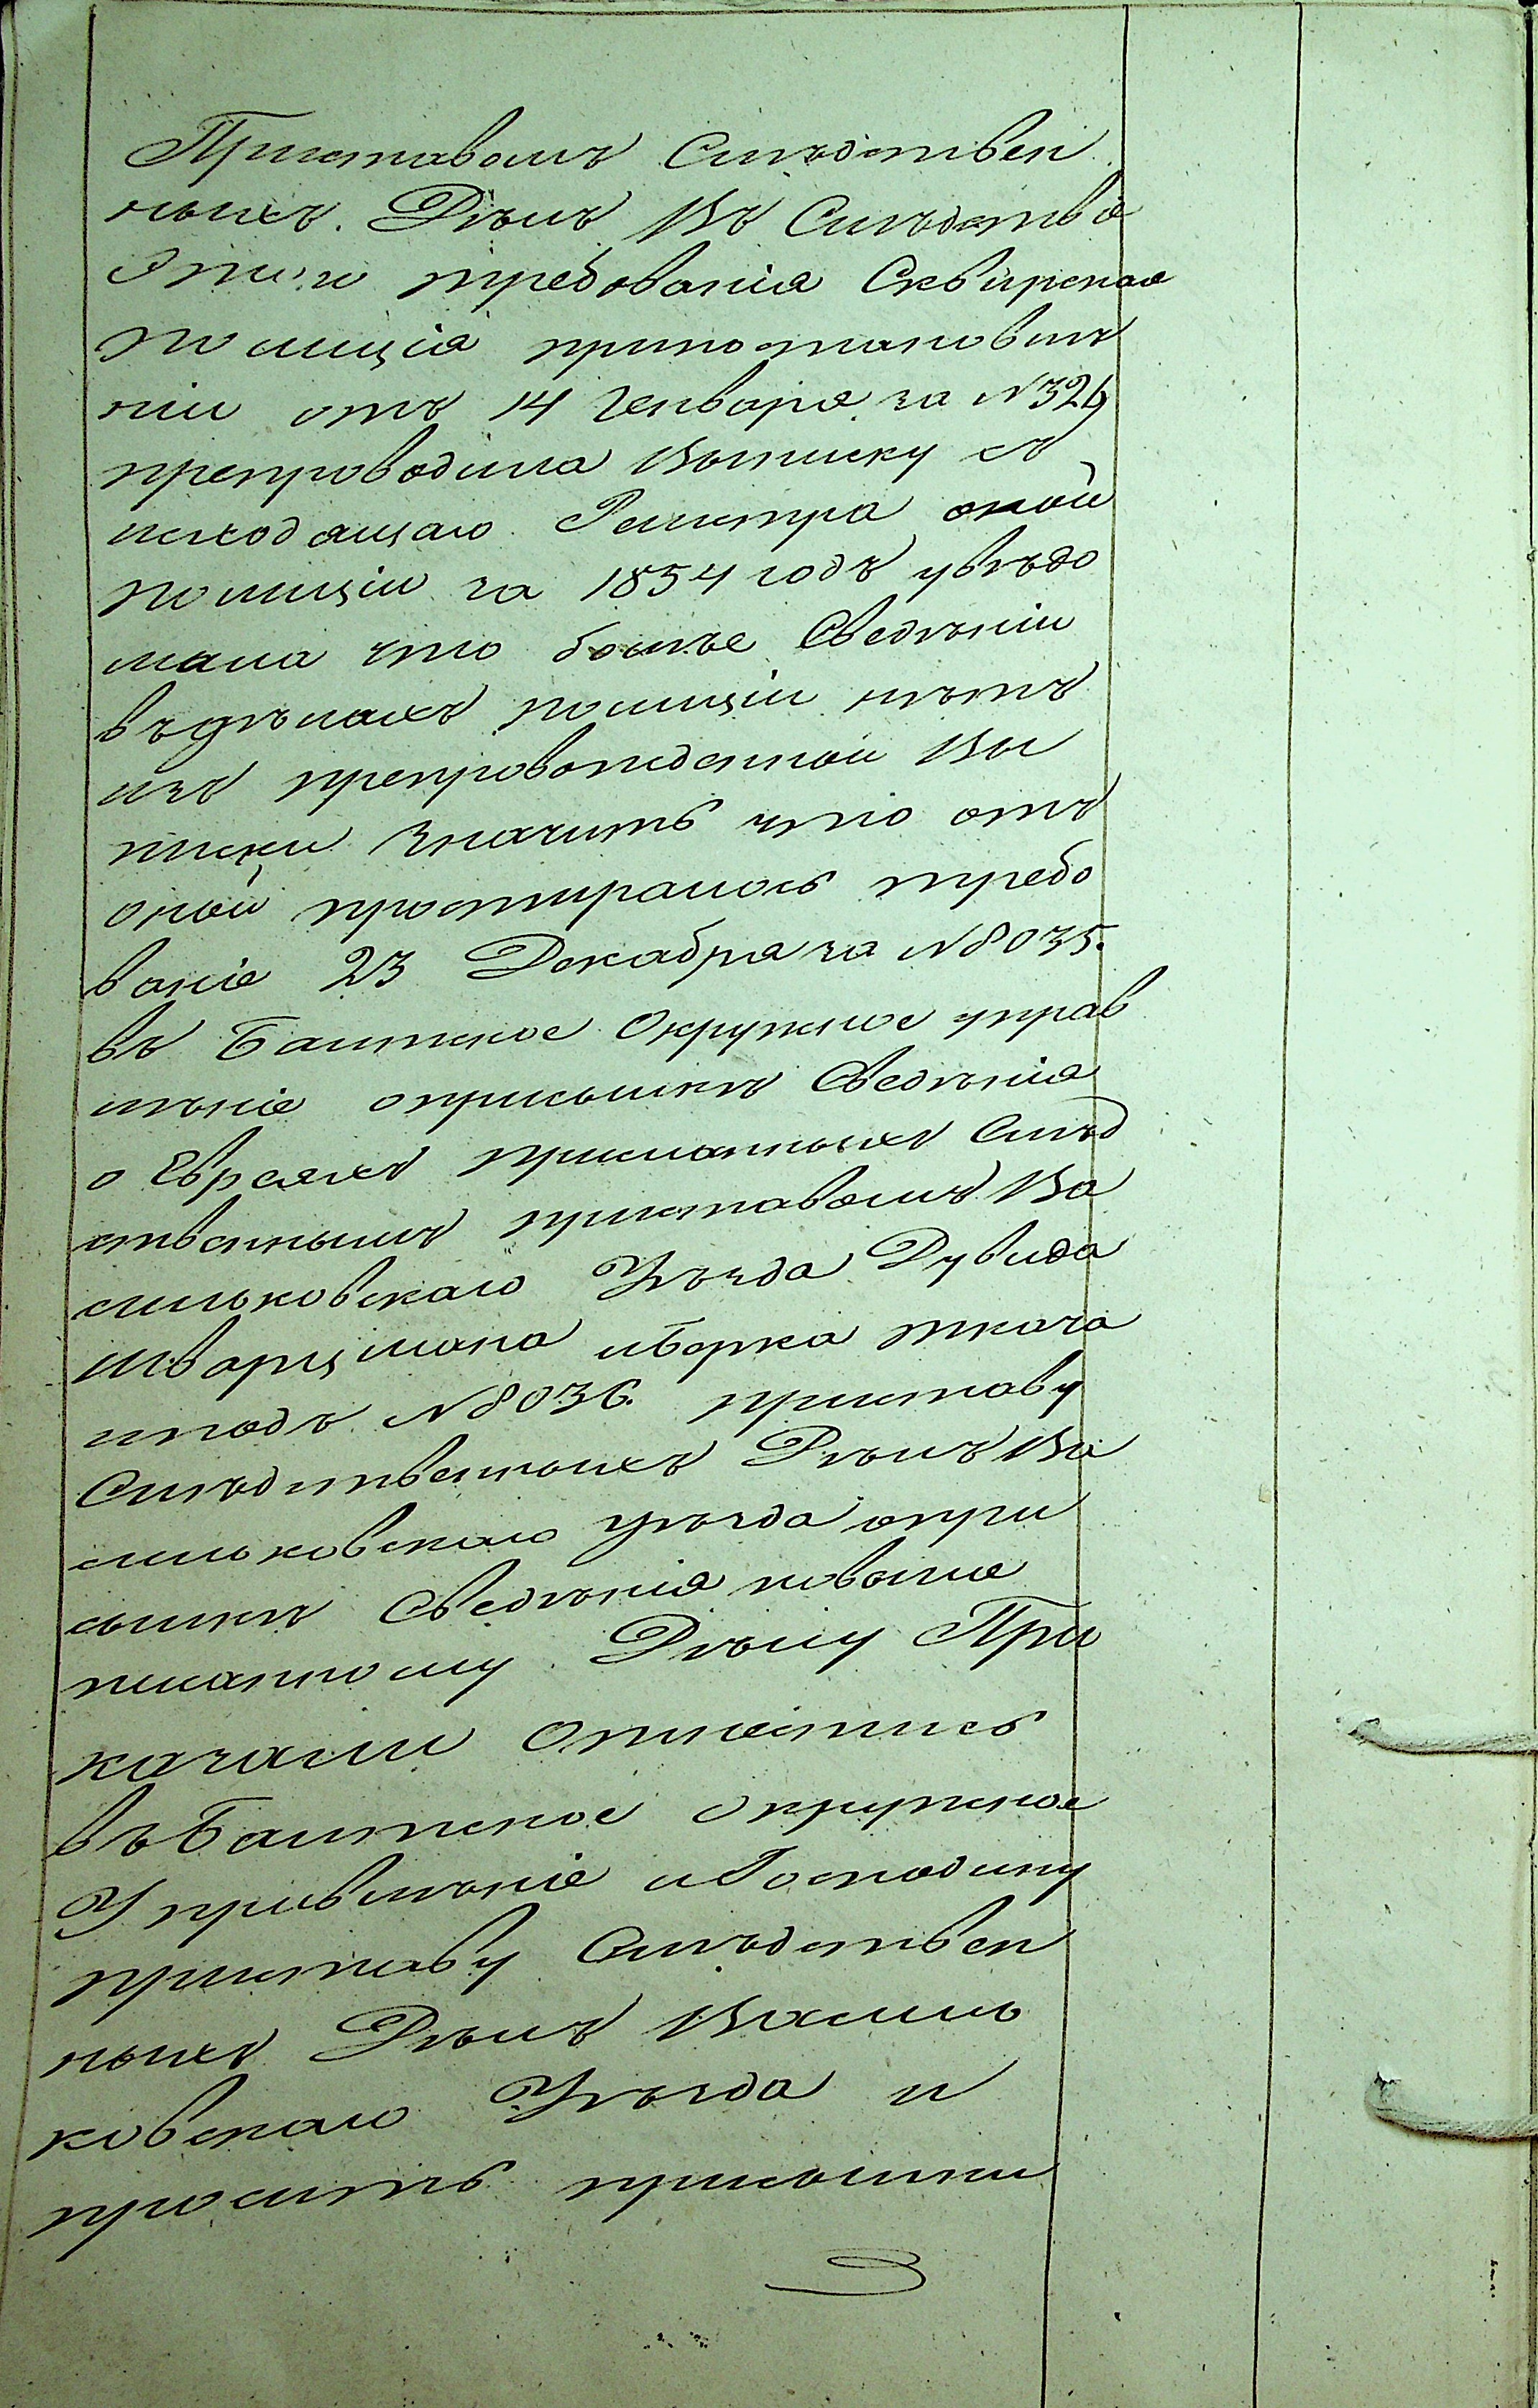 Приставомъ Слѣдствен
ныхъ. Дѣлъ Въ Слѣдствіе
этого требованія Сквирская
полиція припостановле
ніи отъ 14 Генваря за №329
препроводила Выписку съ
исходящаго Регистра оной
полиціи за 1854 годъ увѣдо
мила что болѣе Сведѣніи
въдѣлахъ полиціи нѣтъ
изъ препровожденной Вы
писки Значитъ что отъ
оной простиралось требо
ваніе 23 Декабря за №8035.
въ Балтское Окружное управ
лѣніе оприсылкѣ Сведѣнія
о Евреяхъ присланныхъ Слѣд
ственнымъ приставомъ Ва
сильковскаго Уѣзда Дувида
Шварцмана иБерка ткача
иподъ №8036. приставу
Слѣдственныхъ Дѣлъ Ва
сильковскаго уѣзда опри
сылкѣ Сведѣнія повыше
писанному Дѣлу При
казали Отнестись
въБалтское окружное
Управлѣніе иГосподину
приставу Слѣдствен
ныхъ Дѣлъ Василь
ковскаго Уѣзда и
проситъ присылки